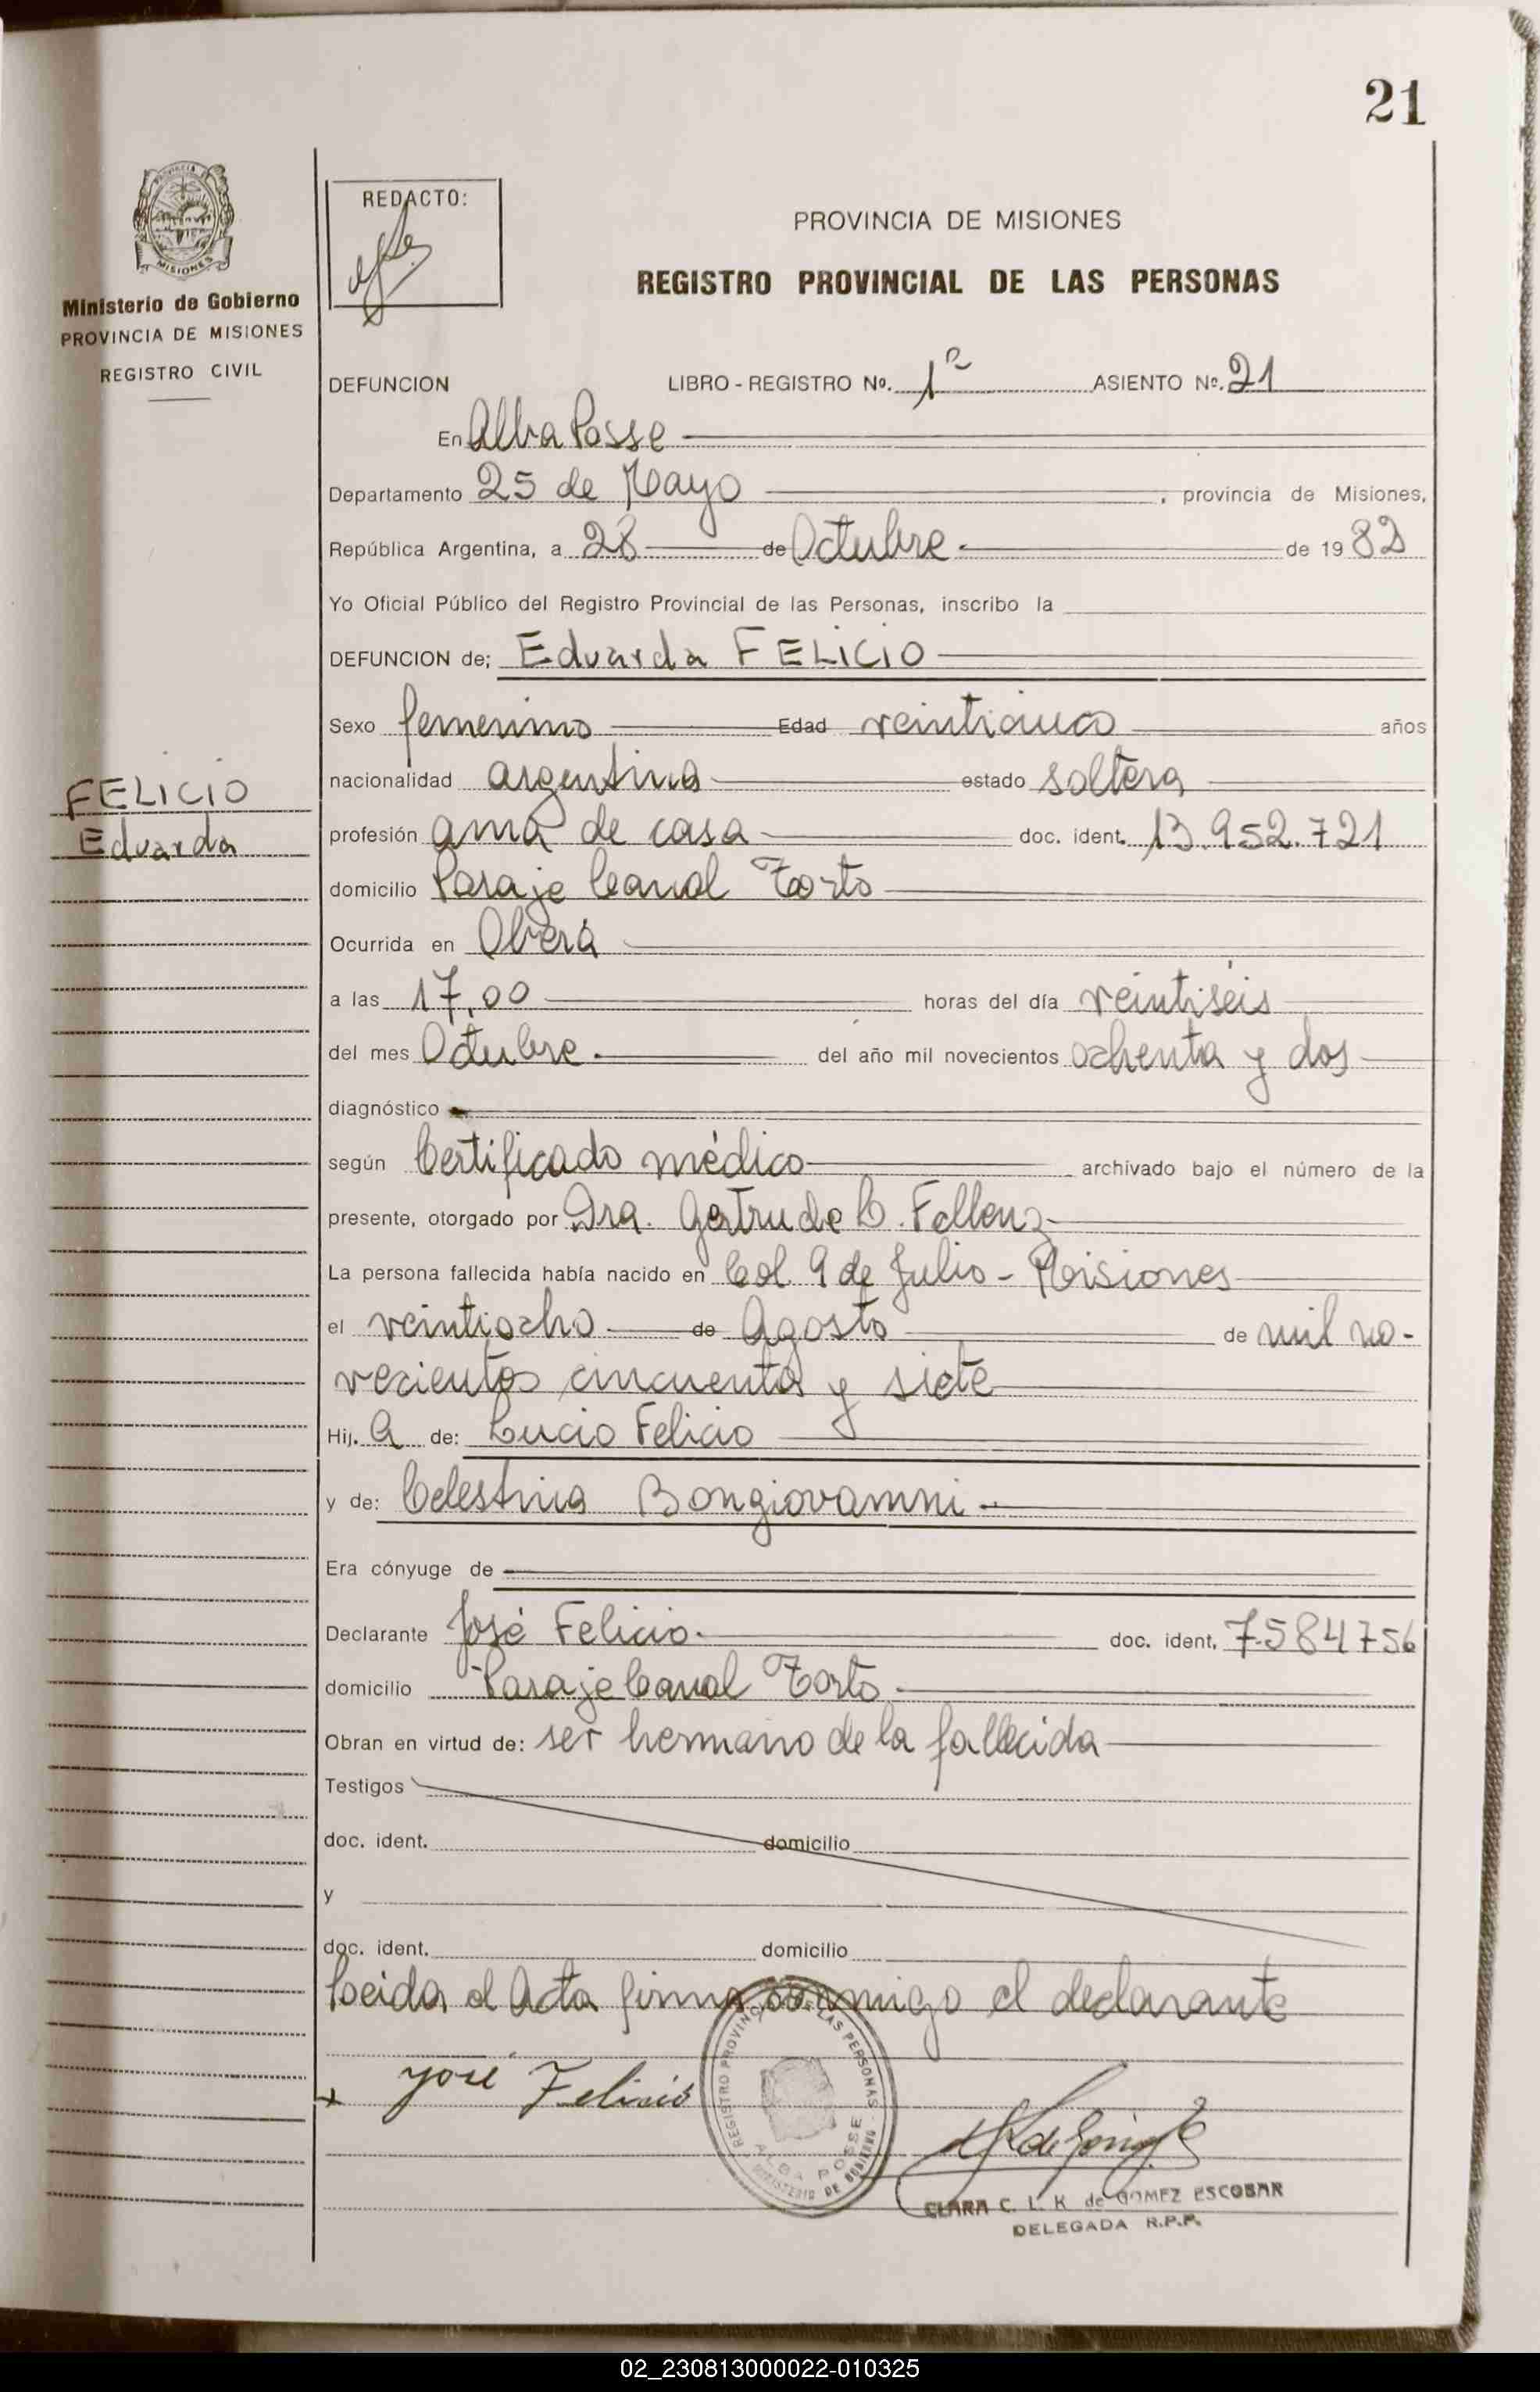 21
PROVINCIA DE
MISIONES
Ministerio de Gobierno
PROVINCIA DE MISIONES
REGISTRO CIVIL
FELICIO
Eduarda
REDACTO:
PROVINCIA DE MISIONES
REGISTRO PROVINCIAL DE LAS PERSONAS
DEFUNCION LIBRO - REGISTRO Nº. 1º ASIENTO Nº. 21
En Alba Posse
Departamento 25 de Mayo, provincia de Misiones,
República Argentina, a 28 de Octubre de 1982
Yo Oficial Público del Registro Provincial de las Personas, inscribo la
DEFUNCION de; Eduarda FELICIO
Sexo femenino Edad veinticinco años
nacionalidad argentina estado soltera
profesión ama de casa doc. ident. 13.952.721
domicilio Paraje Canal Torto
Ocurrida en Oberá
a las 17,00 horas del día veintiséis
del mes Octubre. del año mil novecientos ochenta y dos
diagnóstico
según Certificado médico archivado bajo el número de la
presente, otorgado por Dra. Gertrude C. Fallenz
La persona fallecida había nacido en Col. 9 de Julio - Misiones
el veintiocho de Agosto de mil no-
vecientos cincuenta y siete
Hij. a de: Lucio Felicio
y de: Celestina Bongiovanni
Era cónyuge de
Declarante José Felicio. doc. ident. 7.584756
domicilio Paraje Canal Torto
Obran en virtud de: ser hermano de la fallecida
Testigos
doc. ident. domicilio
y
doc. ident. domicilio
Leida el Acta firma conmigo el declarante
José Felicio
REGISTRO PROVINCIAL DE LAS PERSONAS
ALBA POSSE
MINISTERIO DE GOBIERNO
CLARA C. L. K de GOMEZ ESCOBAR
DELEGADA R.P.P.
02_230813000022-010325